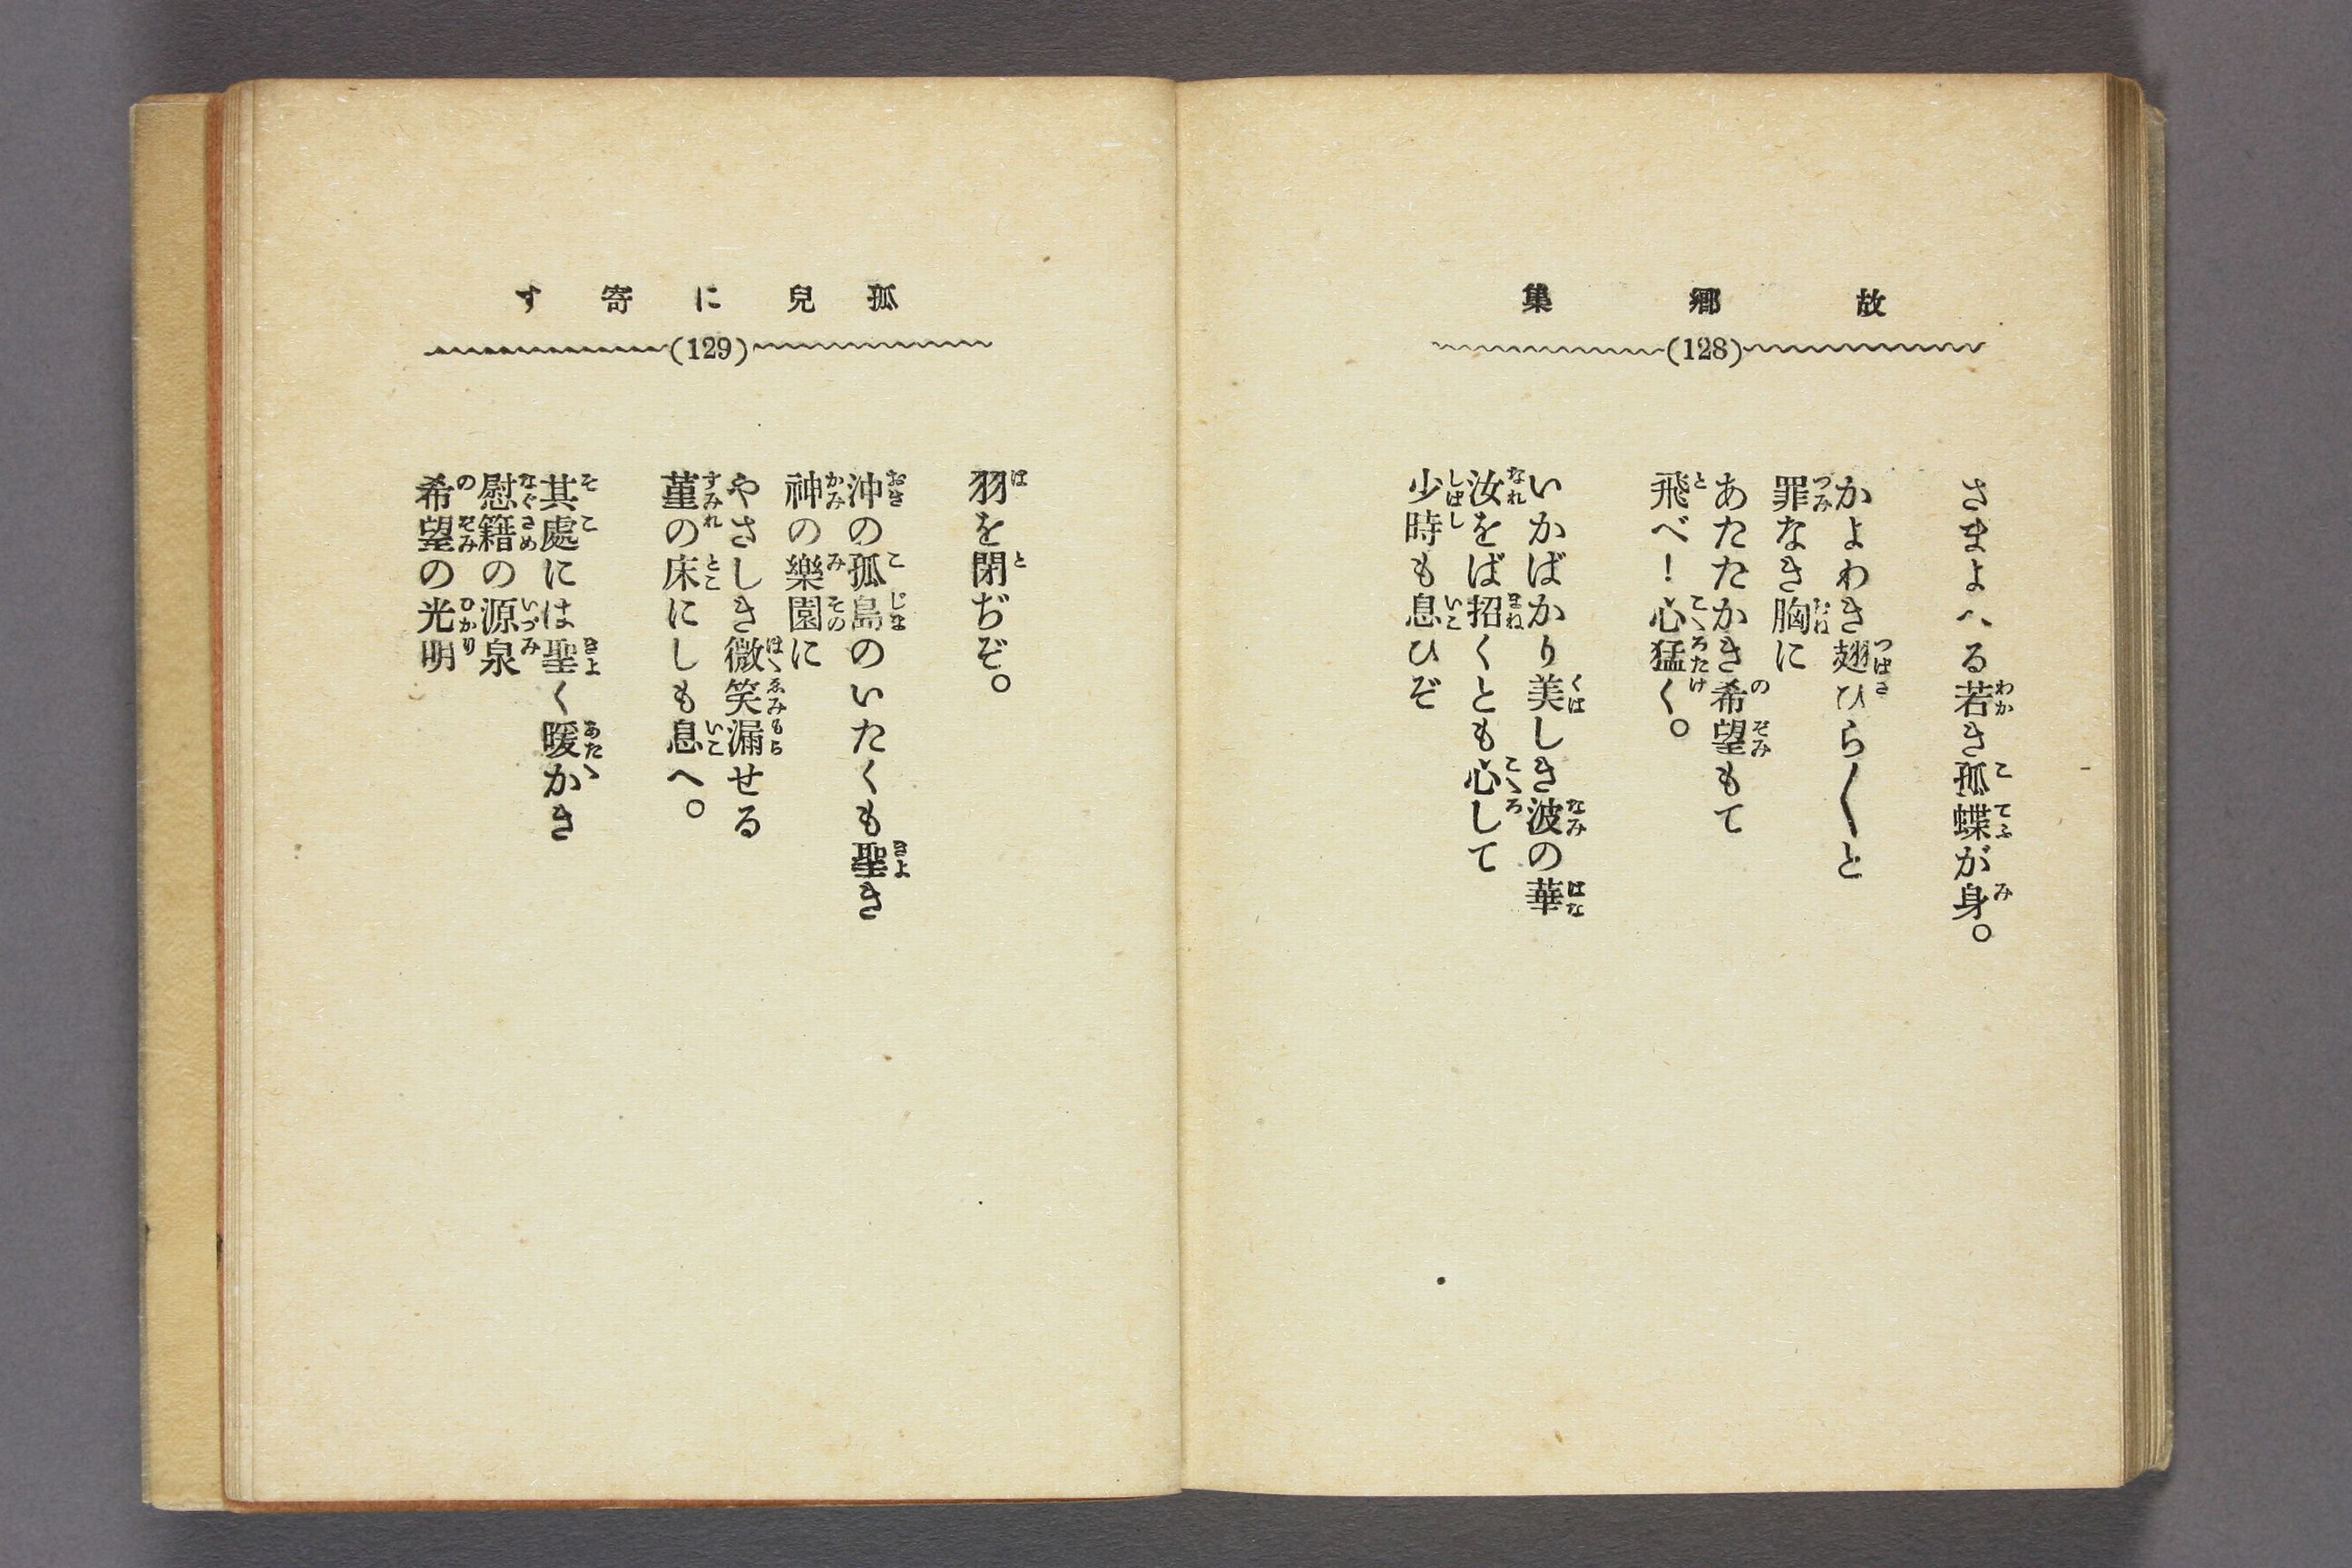 故郷集
(128)
さまよへる若き孤蝶が身。
かよわき翅ひら〳〵と
罪なき胸に
あたたかき希望もて
飛べ！心猛く。
いかばかり美しき波の華
汝をば招くとも心して
少時も息ひぞ
孤兒に寄す
(129)
羽を閉ぢぞ。
沖の孤島のいたくも聖き
神の樂園に
やさしき微笑漏せる
菫の床にしも息へ。
其處には聖く暖かき
慰籍の源泉
希望の光明